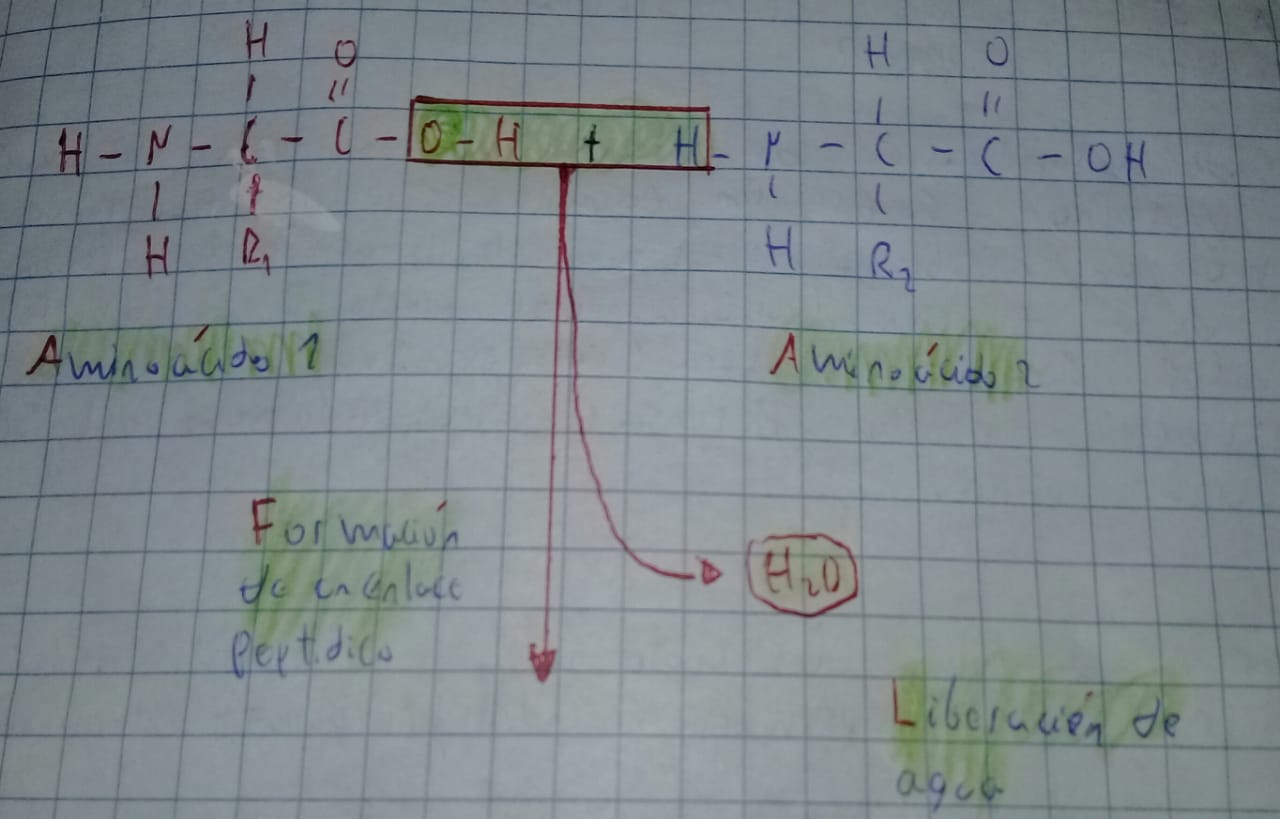 H O H O
| || | ||
H - N - C - C - O - H + H - N - C - C - OH
| | | |
H R₁ H R₂
Aminoácido 1 Aminoácido 2
Formación
de un enlace
peptídico
H₂O
Liberación de
agua